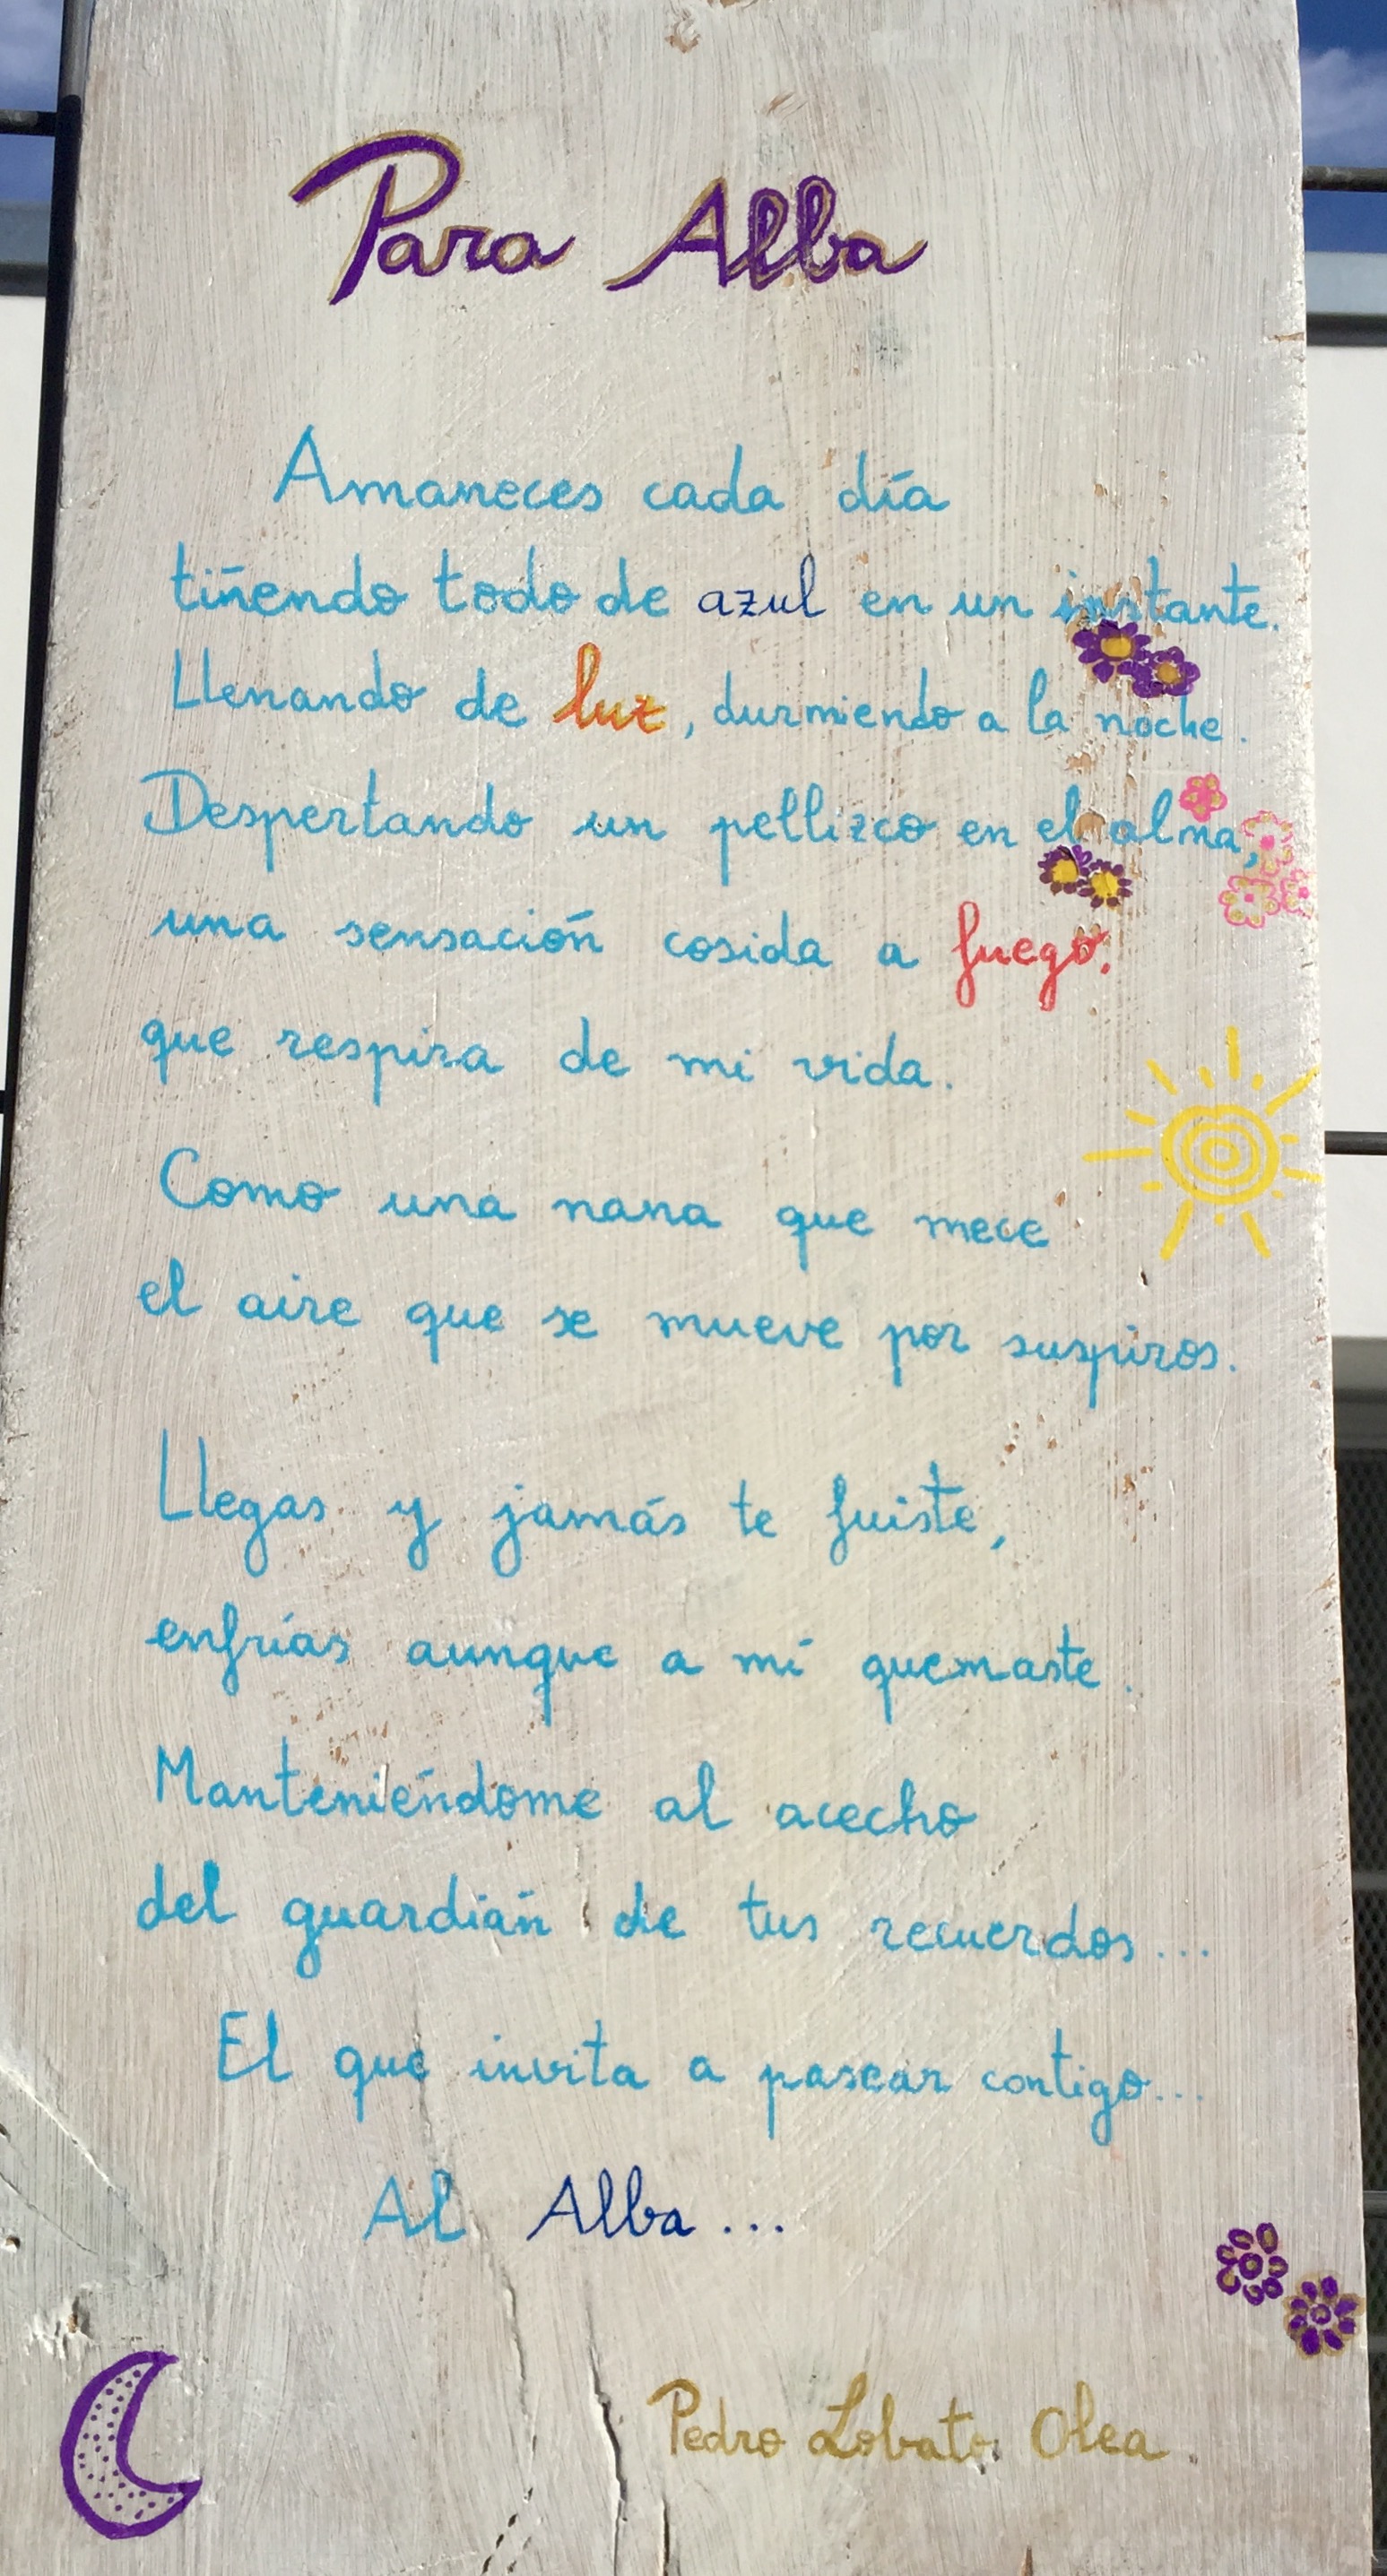 Para Alba
Amaneces cada día
tiñendo todo de azul en un instante.
Llenando de luz, durmiendo a la noche.
Despertando un pellizco en el alma,
una sensación cosida a fuego.
que respira de mi vida.
Como una nana que mece
el aire que se mueve por suspiros.
Llegas y jamás te fuiste,
enfrías aunque a mí quemaste.
Manteniéndome al acecho
del guardián de tus recuerdos...
El que invita a pasear contigo...
Al Alba...
Pedro Lobato Olea.